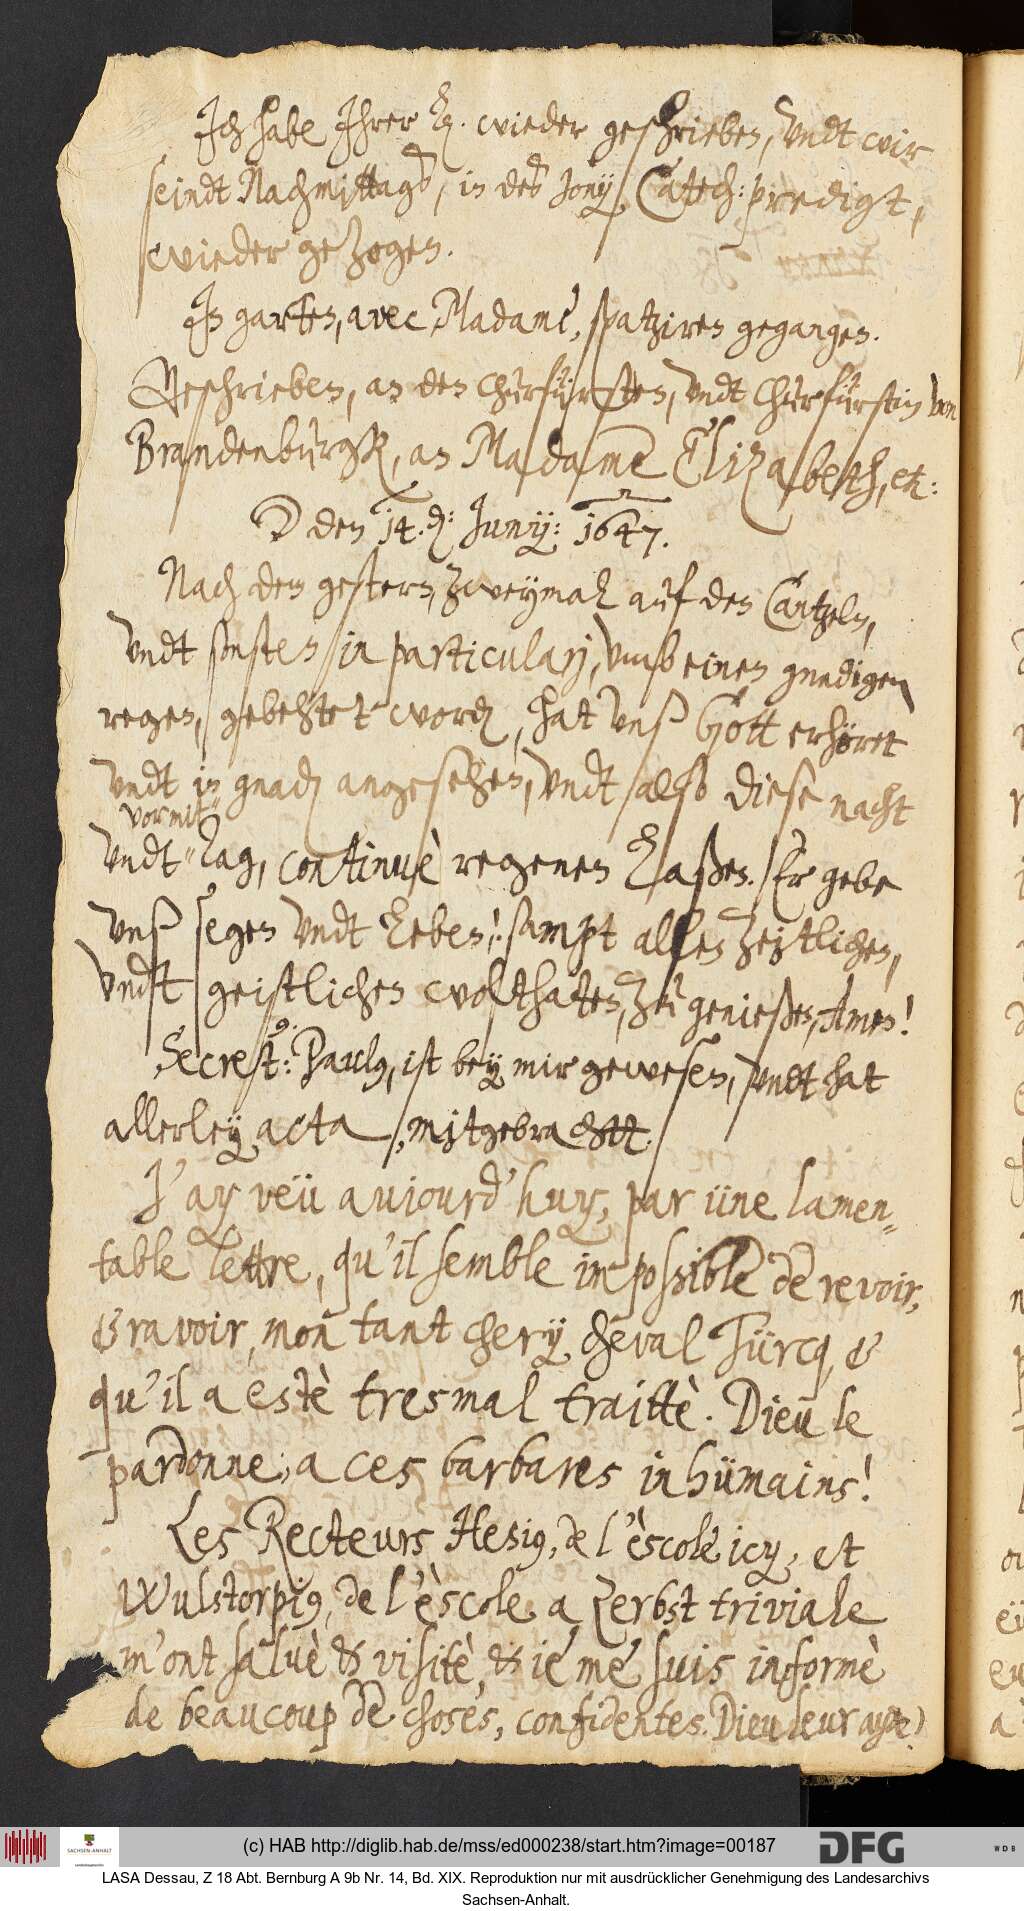 Ich habe Ihrer L. wieder geschrieben, undt wir
seindt Nachmittags, in des Catech: predigt,
wieder gezogen.
In garten, avec Madamé, spatziren gegangen.
Geschrieben, an den Churfürsten, undt Churfürstin von
Brandenburgk, an Madame Elizabeth, etc:
den 14.d: Junij: 1647.
Nach dem gestern, zweymal auf den Cantzeln,
undt sonsten in particulari, umb einen gnedigen
regen, gebehtet word, hat unß Gott erhöret
undt in gnad angesehen, undt also diese nacht
vormit
undt Tag, continuè regenen laßen. Er gebe
unß segen undt leben! sampt allen zeitlichen,
undt geistlichen wolthaten, zu genießen, Amen!
Secret: Paulus, ist bey mir gewesen, undt hat
allerley acta, mitgebrachtt.
J'ay veü aujourd'huy, par üne lamen=
table lettre, qu'il semble impossible de revoir,
& ravoir, mon tant chery cheval Türcq, &
qu'il a estè tresmal traittè. Dieu le
pardonne, a ces barbares inhümains!
Les Recteurs Hesius, de l'èscole icy, et
Wulstorpius, de l'èscole a Zerbst triviale
m'ont saluè & visitè, & ie me suis informè
de beaucoup de choses, confidentes. Dieu leur ayde)
(c) HAB http://diglib.hab.de/mss/ed000238/start.htm?image=00187
SACHSEN-ANHALT
DFG
WDB
LASA Dessau, Z 18 Abt. Bernburg A 9b Nr. 14, Bd. XIX. Reproduktion nur mit ausdrücklicher Genehmigung des Landesarchivs
Sachsen-Anhalt.